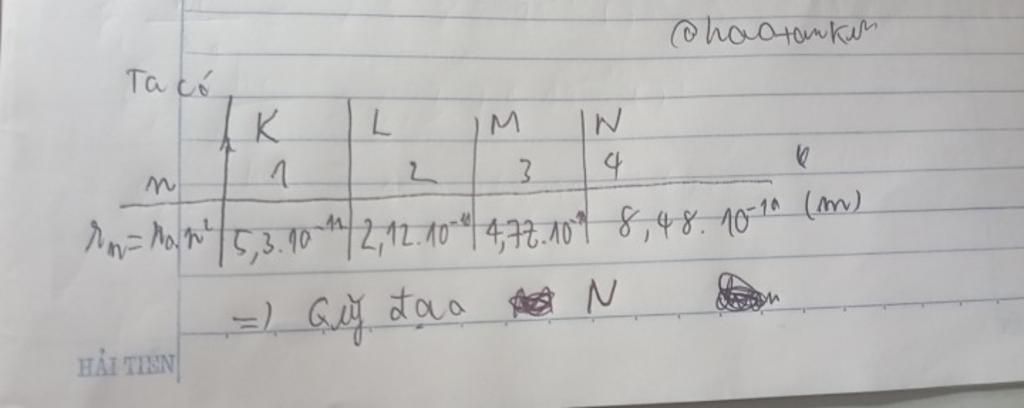 @haatankun
Ta có
K L M N
n 1 2 3 4
rₙ = r₀n² 5,3.10⁻¹¹ 2,12.10⁻¹⁰ 4,77.10⁻¹⁰ 8,48.10⁻¹⁰ (m)
=) Quỹ đạo N
HẢI TIẾN